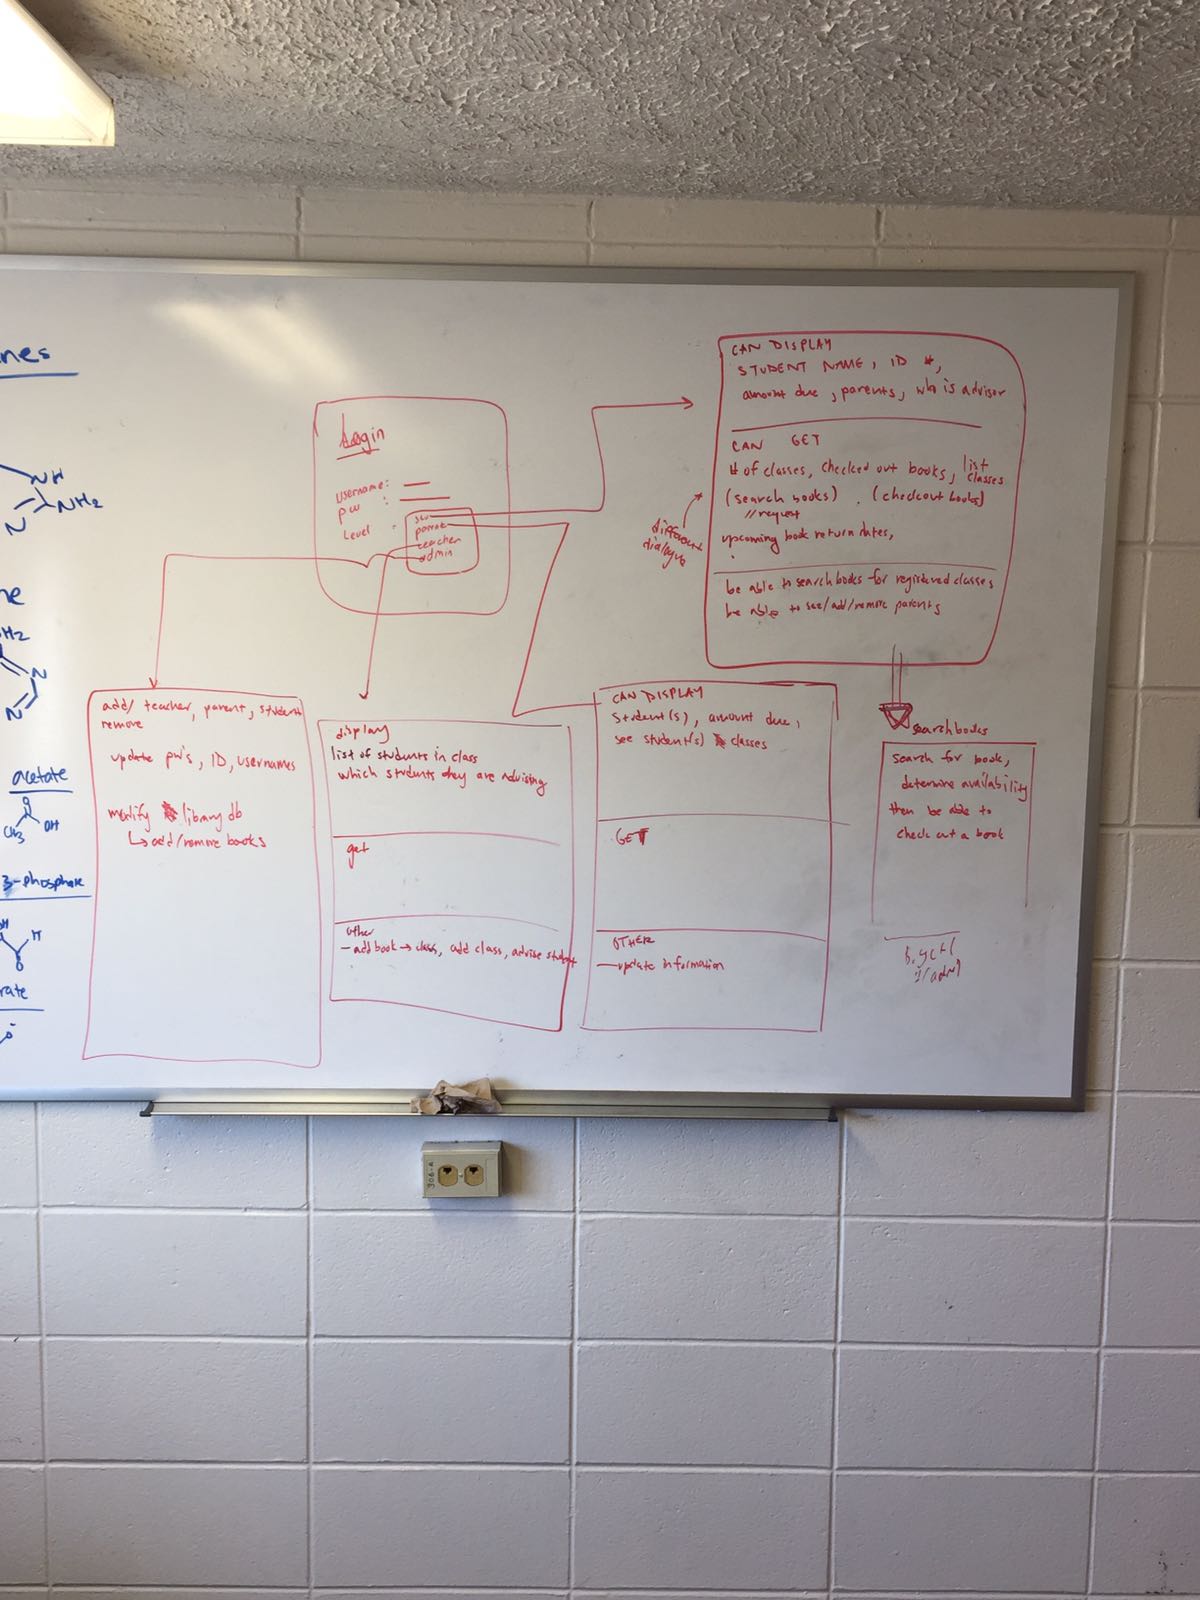 nes
NH
NH2
N
ne
N
N
acetate
O
CH3 OH
3-phosphate
OH H
O
rate
Login
username:
pw :
Level :
stu
parent
teacher
admin
CAN DISPLAY
STUDENT NAME, ID #,
amount due, parents, who is advisor
CAN GET
# of classes, checked out books, list
classes
(search books) . (checkout books)
//request
upcoming book return dates,
different
dialogue
be able to search books for registered classes
be able to see/add/remove parents
add/ teacher, parent, student
remove
update pw's, ID, usernames
modify library db
↳ add/remove books
display
list of students in class
which students they are advising
get
other
- add book → class, add class, advise student
CAN DISPLAY
student(s), amount due,
see student(s) classes
GET
OTHER
- update information
search books
search for book,
determine availability
then be able to
check out a book
306-A